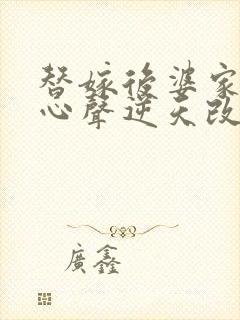 替嫁後婆家
心聲逆天改
廣鑫